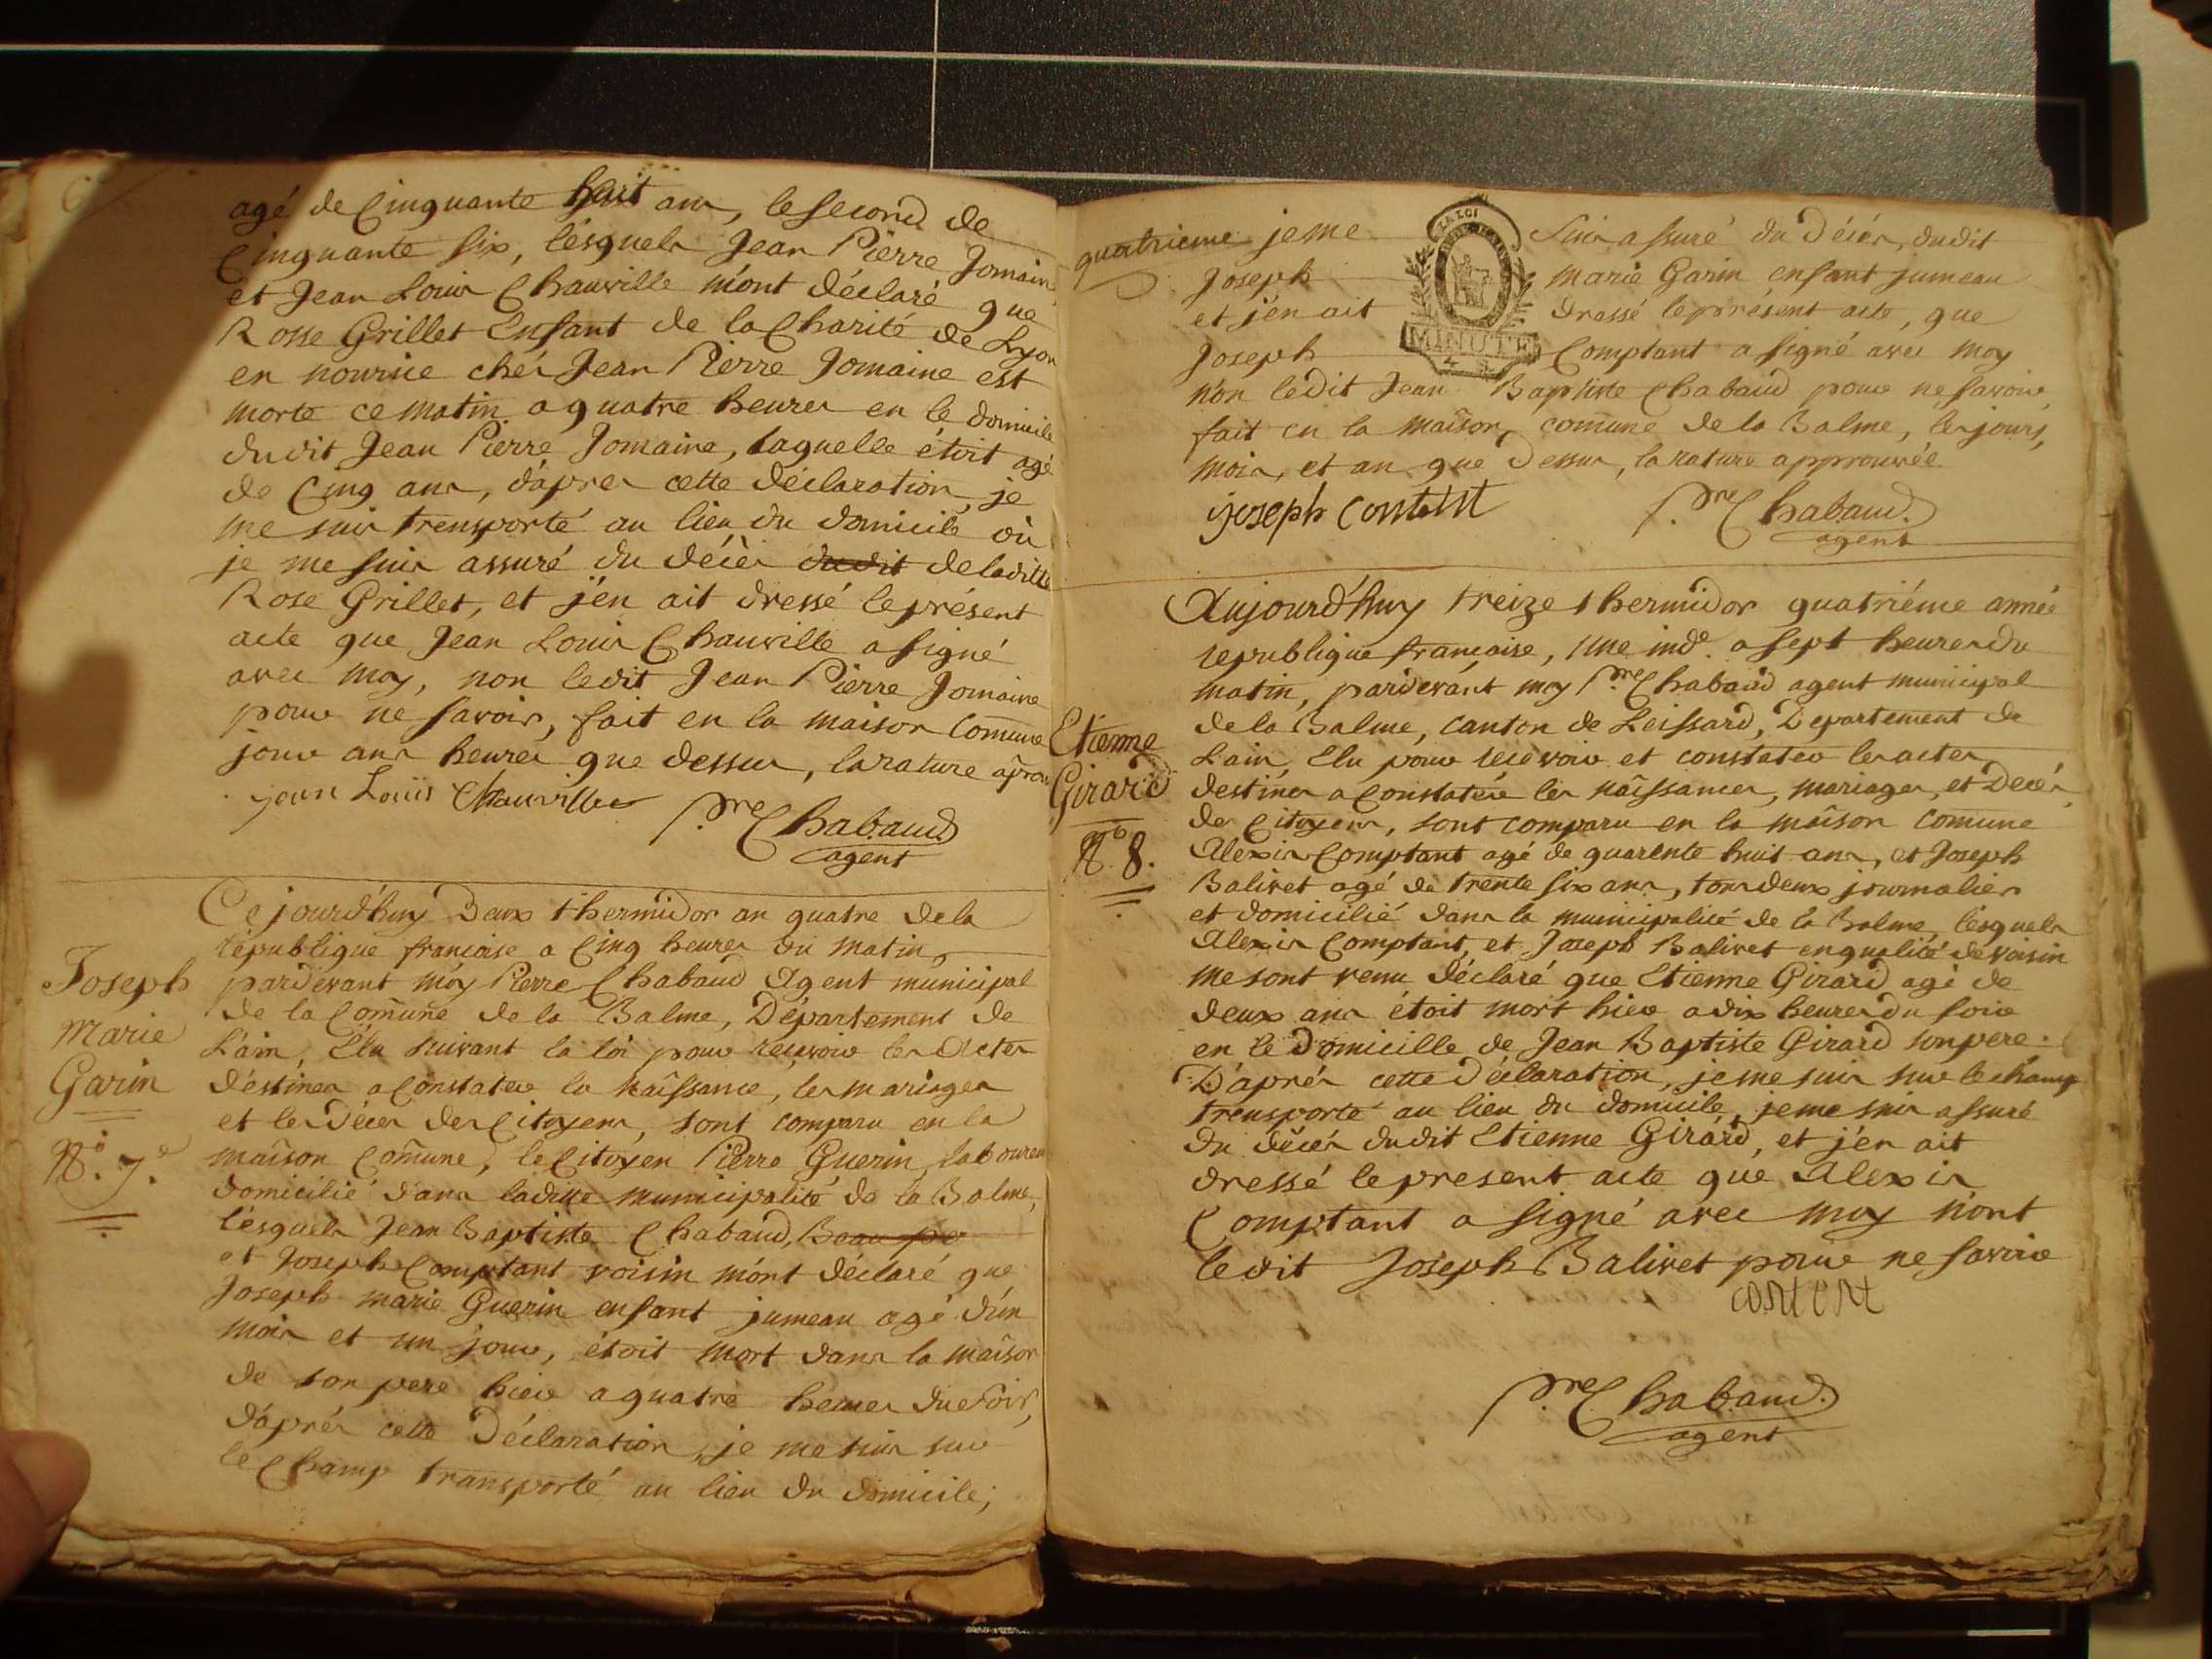 agé de Cinquante huit ans, le second de
Cinquante six, lésquels Jean Pierre Jomaine
et Jean Louis Chauville m'ont déclaré que
Rosse Grillet Enfant de la Charité de Lyon
en nourice chés Jean Pierre Jomaine est
morte ce matin a quatre heures en le domicile
du dit Jean Pierre Jomaine, laquelle étoit agé
de Cinq ans, d'apres cette déclaration, je
me suis trensporté au lieu du domicile où
je me suis assuré du décès dudit de laditte
Rose Grillet, et j'en ait dressé le présent
acte que Jean Louis Chauville a signé
avec moy, non ledit Jean Pierre Jomaine
pour ne savoir, fait en la maison Commune
jour ans heures que dessus, la rature aprou
jean Louis Chauville
pre Chabaud
agent
Joseph
Marie
Garin
No. 7.e
Ce jourd'huy Deux thermidor an quatre de la
république francoise a Cinq heures du matin
pardevant moy Pierre Chabaud Agent municipal
de la Commune de la Balme, Département de
L'ain, Elu suivant la loi pour reçevoir les Actes
déstinés a Constater la naîssance, les mariages
et les décès des Citoyens, sont comparu en la
maîson Commune, le Citoyen Pierre Guerin laboureur
domicilié dans laditte municipalité de la Balme,
lésquels Jean Baptiste Chabaud, Beau pere
et Joseph Comptant voisin m'ont déclaré que
Joseph marie Guerin enfant jumeau agé d'un
mois et un jour, étoit mort dans la maîson
de son pere hier a quatre heures du soir,
d'aprés cette Déclaration, je me suis sur
le Champ transporté au lieu du domicile;
quatrieme je me suis assuré du décés, dudit
Joseph marie Garin enfant jumeau
et j'en ait dressé le présent acte, que
Joseph Comptant a signé avec moy
n'on ledit Jean Baptiste Chabaud pour ne savoir,
fait en la maîson, commune de la Balme, les jours,
mois, et an que dessus, la rature approuvée
LA LOI
MINUTE
joseph contant
pre Chabaud.
agent
Etienne
Girard
No 8.
Aujourd'huy treize thermidor quatriéme année
republique francaise, une indé. a sept heures du
matin, pardevant moy pre Chabaud agent municipal
de la Balme, canton de Leissard, Departement de
L'ain, Elu pour recevoir et constater les actes
destinés a Constatére les naîssances, mariages, et Decés,
des Citoyens, sont comparu en la maîson comune
Alexis Comptant agé de quarente huit ans, et Joseph
Balivet agé de trente six ans, tous deux journaliers
et domicilié dans la municipalité de la Balme, lésquels
Alexis Comptant, et Joseph Balivet en qualité de voisin
me sont venu déclaré que Etienne Girard agé de
deux ans étoit mort hier a dix heures du soir
en le Domicille de Jean Baptiste Girard son pere.
D'aprés cette déclaration, je me suis sur le champ
trensporté au lieu du domicile, je me suis assuré
du décés dudit Etienne Girard, et j'en ait
dressé le present acte que Alexis
Comptant a signé avec moy n'ont
ledit Joseph Balivet pour ne savoir
contant
pre Chabaud.
agent